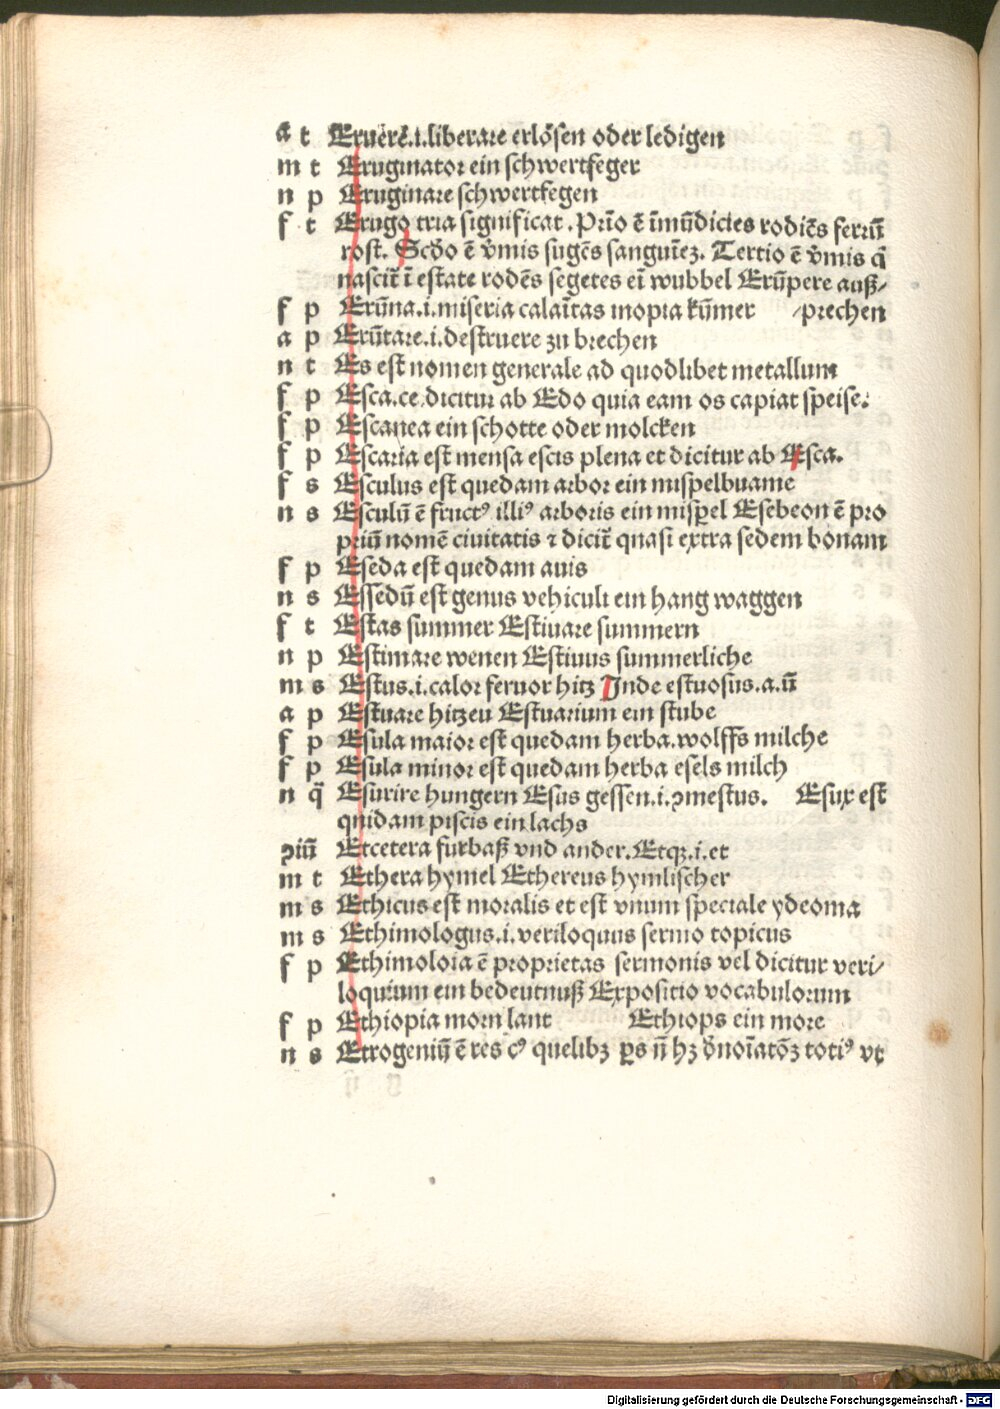 a t Eruere.i.liberare erlösen oder ledigen
m t Eruginator ein schwertfeger
n p Eruginare schwertfegen
f t Erugo tria significat. Prīo ē īmūdicies rodiēs ferrū
rost. Scďo ē v̄mis sugēs sanguīeꝫ. Tertio ē v̄mis q̄
nascit̄ ī estate rodēs segetes eī wubbel Erūpere auß⸗
f p Erūna.i.miseria calaītas inopia kūmer ⸗prechen
a p Erūtare.i.destruere zu brechen
n t Es est nomen generale ad quodlibet metallum
f p Esca.ce.dicitur ab Edo quia eam os capiat speise.
f p Escanea ein schotte oder molcken
f p Escaria est mensa escis plena et dicitur ab Esca.
f s Esculus est quedam arbor ein mispelbuame
n s Esculū ē fructꝰ illiꝰ arboris ein mispel Esebeon ē pro
priū nomē ciuitatis ⁊ dicit̄ quasi extra sedem bonam
f p Eseda est quedam auis
n s Essedū est genus vehiculi ein hang waggen
f t Estas summer Estiuare summern
n p Estimare wenen Estiuus summerliche
m s Estus.i.calor feruor hitz Inde estuosus.a.ū
a p Estuare hitzen Estuarium ein stube
f p Esula maior est quedam herba.wolffs milche
f p Esula minor est quedam herba esels milch
n q̄ Esurire hungern Esus gessen.i.ꝯmestus. Esux est
quidam piscis ein lachs
ꝯiū Etcetera furbaß vnd ander.Etqꝫ.i.et
m t Ethera hymel Ethereus hymlischer
m s Ethicus est moralis et est vnum speciale ydeoma
m s Ethimologus.i.veriloquus sermo topicus
f p Ethimoloia ē proprietas sermonis vel dicitur veri⸗
loquium ein bedeutnuß Expositio vocabulorum
f p Ethiopia morn lant Ethiops ein more
n s Etrogeniū ē res cꝰ quelibꝫ ꝑs n̄ hꝫ ďnoīatōꝫ totiꝰ vt
Digitalisierung gefördert durch die Deutsche Forschungsgemeinschaft - DFG